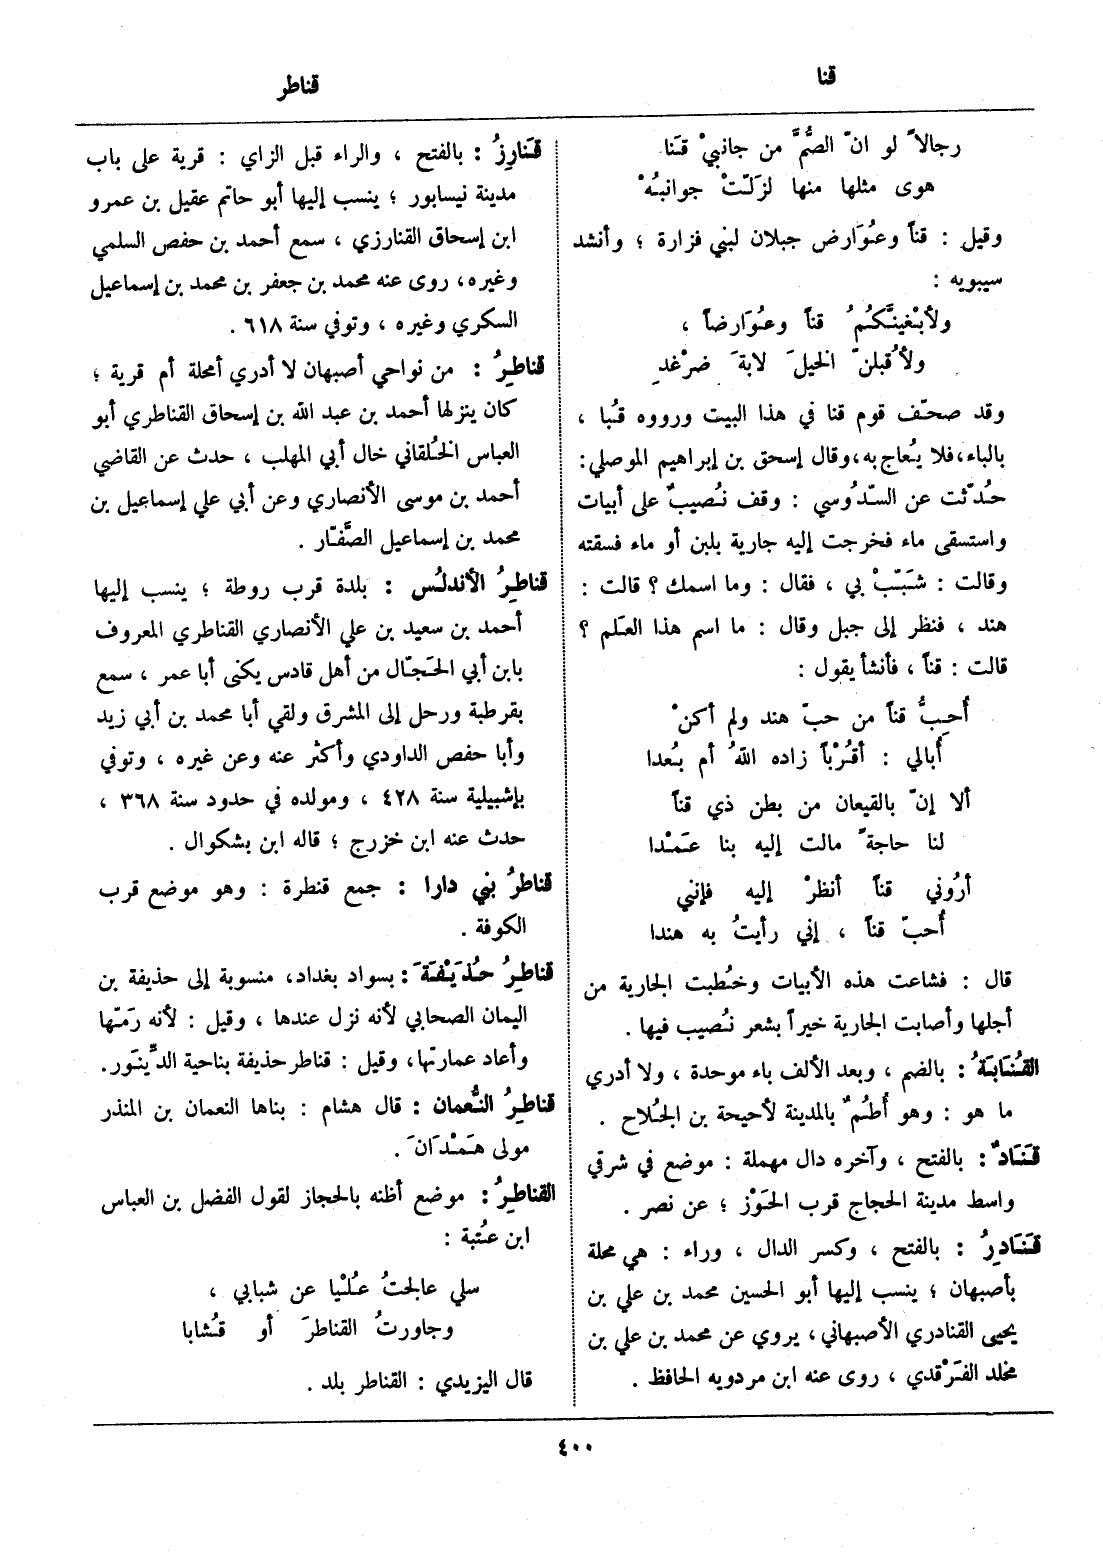 قنا
قناطر
رجالاً لو انّ الصُّمَّ من جانبيْ قَنا
هوى مثلها منها لزَلَتْ جوانبُهْ
وقيل : قناً وعُوَارض جبلان لبني فزارة ؛ وأنشد
سيبويه :
ولأبْغينَّكُمُ قناً وعُوَارضاً ،
ولأُقبلنّ الخيلَ لابةَ ضرْغدِ
وقد صحّف قوم قنا في هذا البيت ورووه قُبا ،
بالباء، فلا يُعاج به، وقال إسحق بن إبراهيم الموصلي:
حُدّثت عن السّدُوسي : وقف نُصيبٌ على أبيات
واستسقى ماء فخرجت إليه جارية بلبن أو ماء فسقته
وقالت : شَبّبْ بي ، فقال : وما اسمك ؟ قالت :
هند ، فنظر إلى جبل وقال : ما اسم هذا العَلم ؟
قالت : قناً ، فأنشأ يقول :
أُحِبُّ قناً من حبّ هند ولم أكنْ
أُبالي : أقُرْباً زاده اللهُ أم بُعدا
ألا إنّ بالقيعان من بطن ذي قناً
لنا حاجةً مالت إليه بنا عَمْدا
أرُوني قناً أنظرْ إليه فإنني
أُحبّ قناً ، إني رأيتُ به هندا
قال : فشاعت هذه الأبيات وخُطبت الجارية من
أجلها وأصابت الجارية خيراً بشعر نُصيب فيها .
القُنَابَةُ : بالضم ، وبعد الألف باء موحدة ، ولا أدري
ما هو : وهو أُطُمٌ بالمدينة لأحيحة بن الجُلاح .
قَنَادٌ : بالفتح ، وآخره دال مهملة : موضع في شرقي
واسط مدينة الحجاج قرب الحَوْز ؛ عن نصر .
قَنَادِرُ : بالفتح ، وكسر الدال ، وراء : هي محلة
بأصبهان ؛ ينسب إليها أبو الحسين محمد بن علي بن
يحيى القنادري الأصبهاني، يروي عن محمد بن علي بن
مخلد الفَرْقدي ، روى عنه ابن مردويه الحافظ .
قَنارِزُ : بالفتح ، والراء قبل الزاي : قرية على باب
مدينة نيسابور ؛ ينسب إليها أبو حاتم عقيل بن عمرو
ابن إسحاق القنارزي ، سمع أحمد بن حفص السلمي
وغيره، روى عنه محمد بن جعفر بن محمد بن إسماعيل
السكري وغيره ، وتوفي سنة ٦١٨ .
قناطِرُ : من نواحي أصبهان لا أدري أمحلة أم قرية ؛
كان ينزلها أحمد بن عبد الله بن إسحاق القناطري أبو
العباس الخُلقاني خال أبي المهلب ، حدث عن القاضي
أحمد بن موسى الأنصاري وعن أبي علي إسماعيل بن
محمد بن إسماعيل الصَّفّار .
قناطِرُ الأندلُس : بلدة قرب روطة ؛ ينسب إليها
أحمد بن سعيد بن علي الأنصاري القناطري المعروف
بابن أبي الحَجّال من أهل قادس يكنى أبا عمر ، سمع
بقرطبة ورحل إلى المشرق ولقي أبا محمد بن أبي زيد
وأبا حفص الداودي وأكثر عنه وعن غيره ، وتوفي
بإشبيلية سنة ٤٢٨ ، ومولده في حدود سنة ٣٦٨ ،
حدث عنه ابن خزرج ؛ قاله ابن بشكوال .
قناطرُ بني دارا : جمع قنطرة : وهو موضع قرب
الكوفة .
قناطِرُ حُذَيْفَةَ : بسواد بغداد، منسوبة إلى حذيفة بن
اليمان الصحابي لأنه نزل عندها ، وقيل : لأنه رَمّها
وأعاد عمارتها، وقيل : قناطر حذيفة بناحية الدِّينَور.
قناطِرُ النُّعمان : قال هشام : بناها النعمان بن المنذر
مولى هَمْدَانَ .
القناطِرُ : موضع أظنه بالحجاز لقول الفضل بن العباس
ابن عُتبة :
سلي عالجتُ عُلْيا عن شبابي ،
وجاورتُ القناطرَ أو قُشابا
قال اليزيدي : القناطر بلد .
٤٠٠